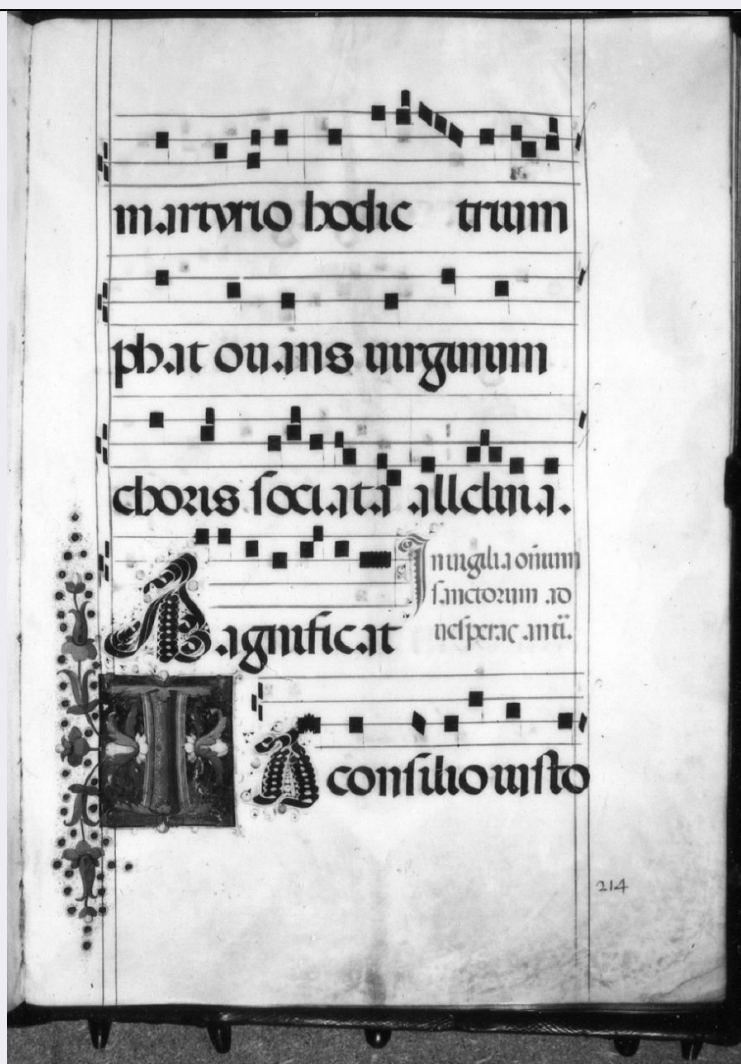 martyrio hodie trium
phat ouans uirginum
choris sociata alleluia.
Magnificat
In uigilia oĩum
sanctorum ad
uesperas antĩ.
IN consilio iusto
214